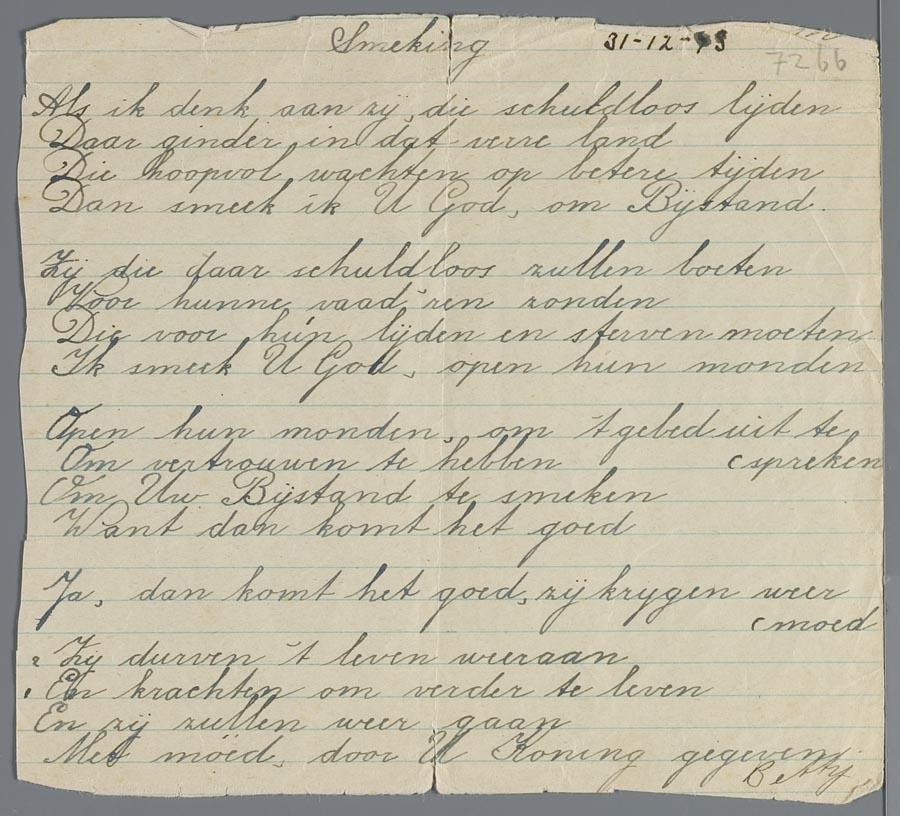 Smeking 31-12-43
7266
Als ik denk aan zij, die schuldloos lijden
Daar ginder, in dat verre land
Die hoopvol wachten op betere tijden
Dan smeek ik U God, om Bijstand.
Zij die daar schuldloos zullen boeten
Voor hunne vaad'ren zonden
Die voor hún lijden en sterven moeten
Ik smeek U God, open hun monden
Open hun monden, om 't gebed uit te
(spreken
Om vertrouwen te hebben
Om Uw Bijstand te smeken
Want dan komt het goed
Ja, dan komt het goed, zij krygen weer
(moed
2 Zij durven 't leven weeraan
1 En krachten om verder te leven
En zij zullen weer gaan
Met moed, door U Koning gegeven
Betty